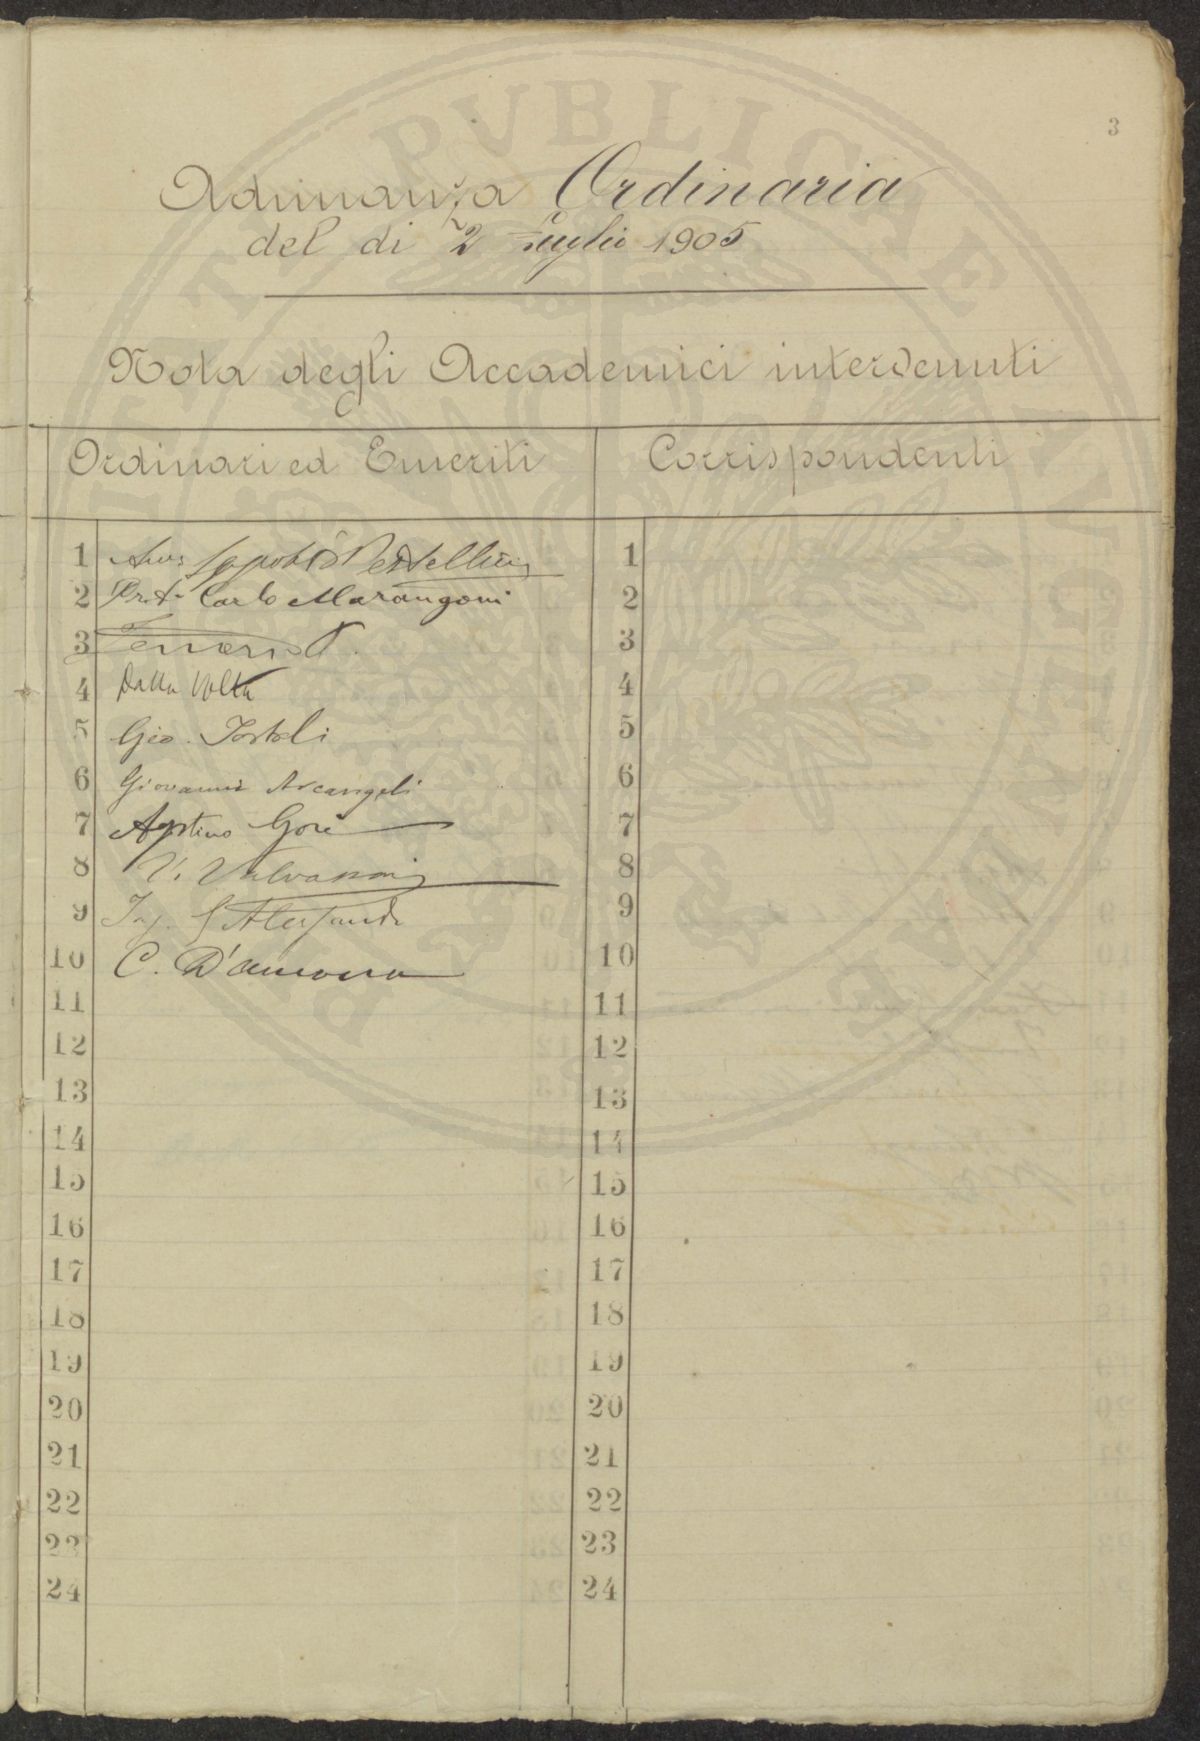 3
Adunanza Ordinaria
del dì 2 Luglio 1905
Nota degli Accademici intervenuti
Ordinari ed Emeriti
Corrispondenti
1
1
2 Prof. Carlo Marangoni
2
3
3
4 Dalla Volta
4
5 Gio. Tortoli
5
6 Giovanni Arcangeli
6
7 Agostino Gori
7
8 V. Valvassori
8
9 Ing. Alessandri
9
10 C. D'Ancona
10
11
11
12
12
13
13
14
14
15
15
16
16
17
17
18
18
19
19
20
20
21
21
22
22
23
23
24
24